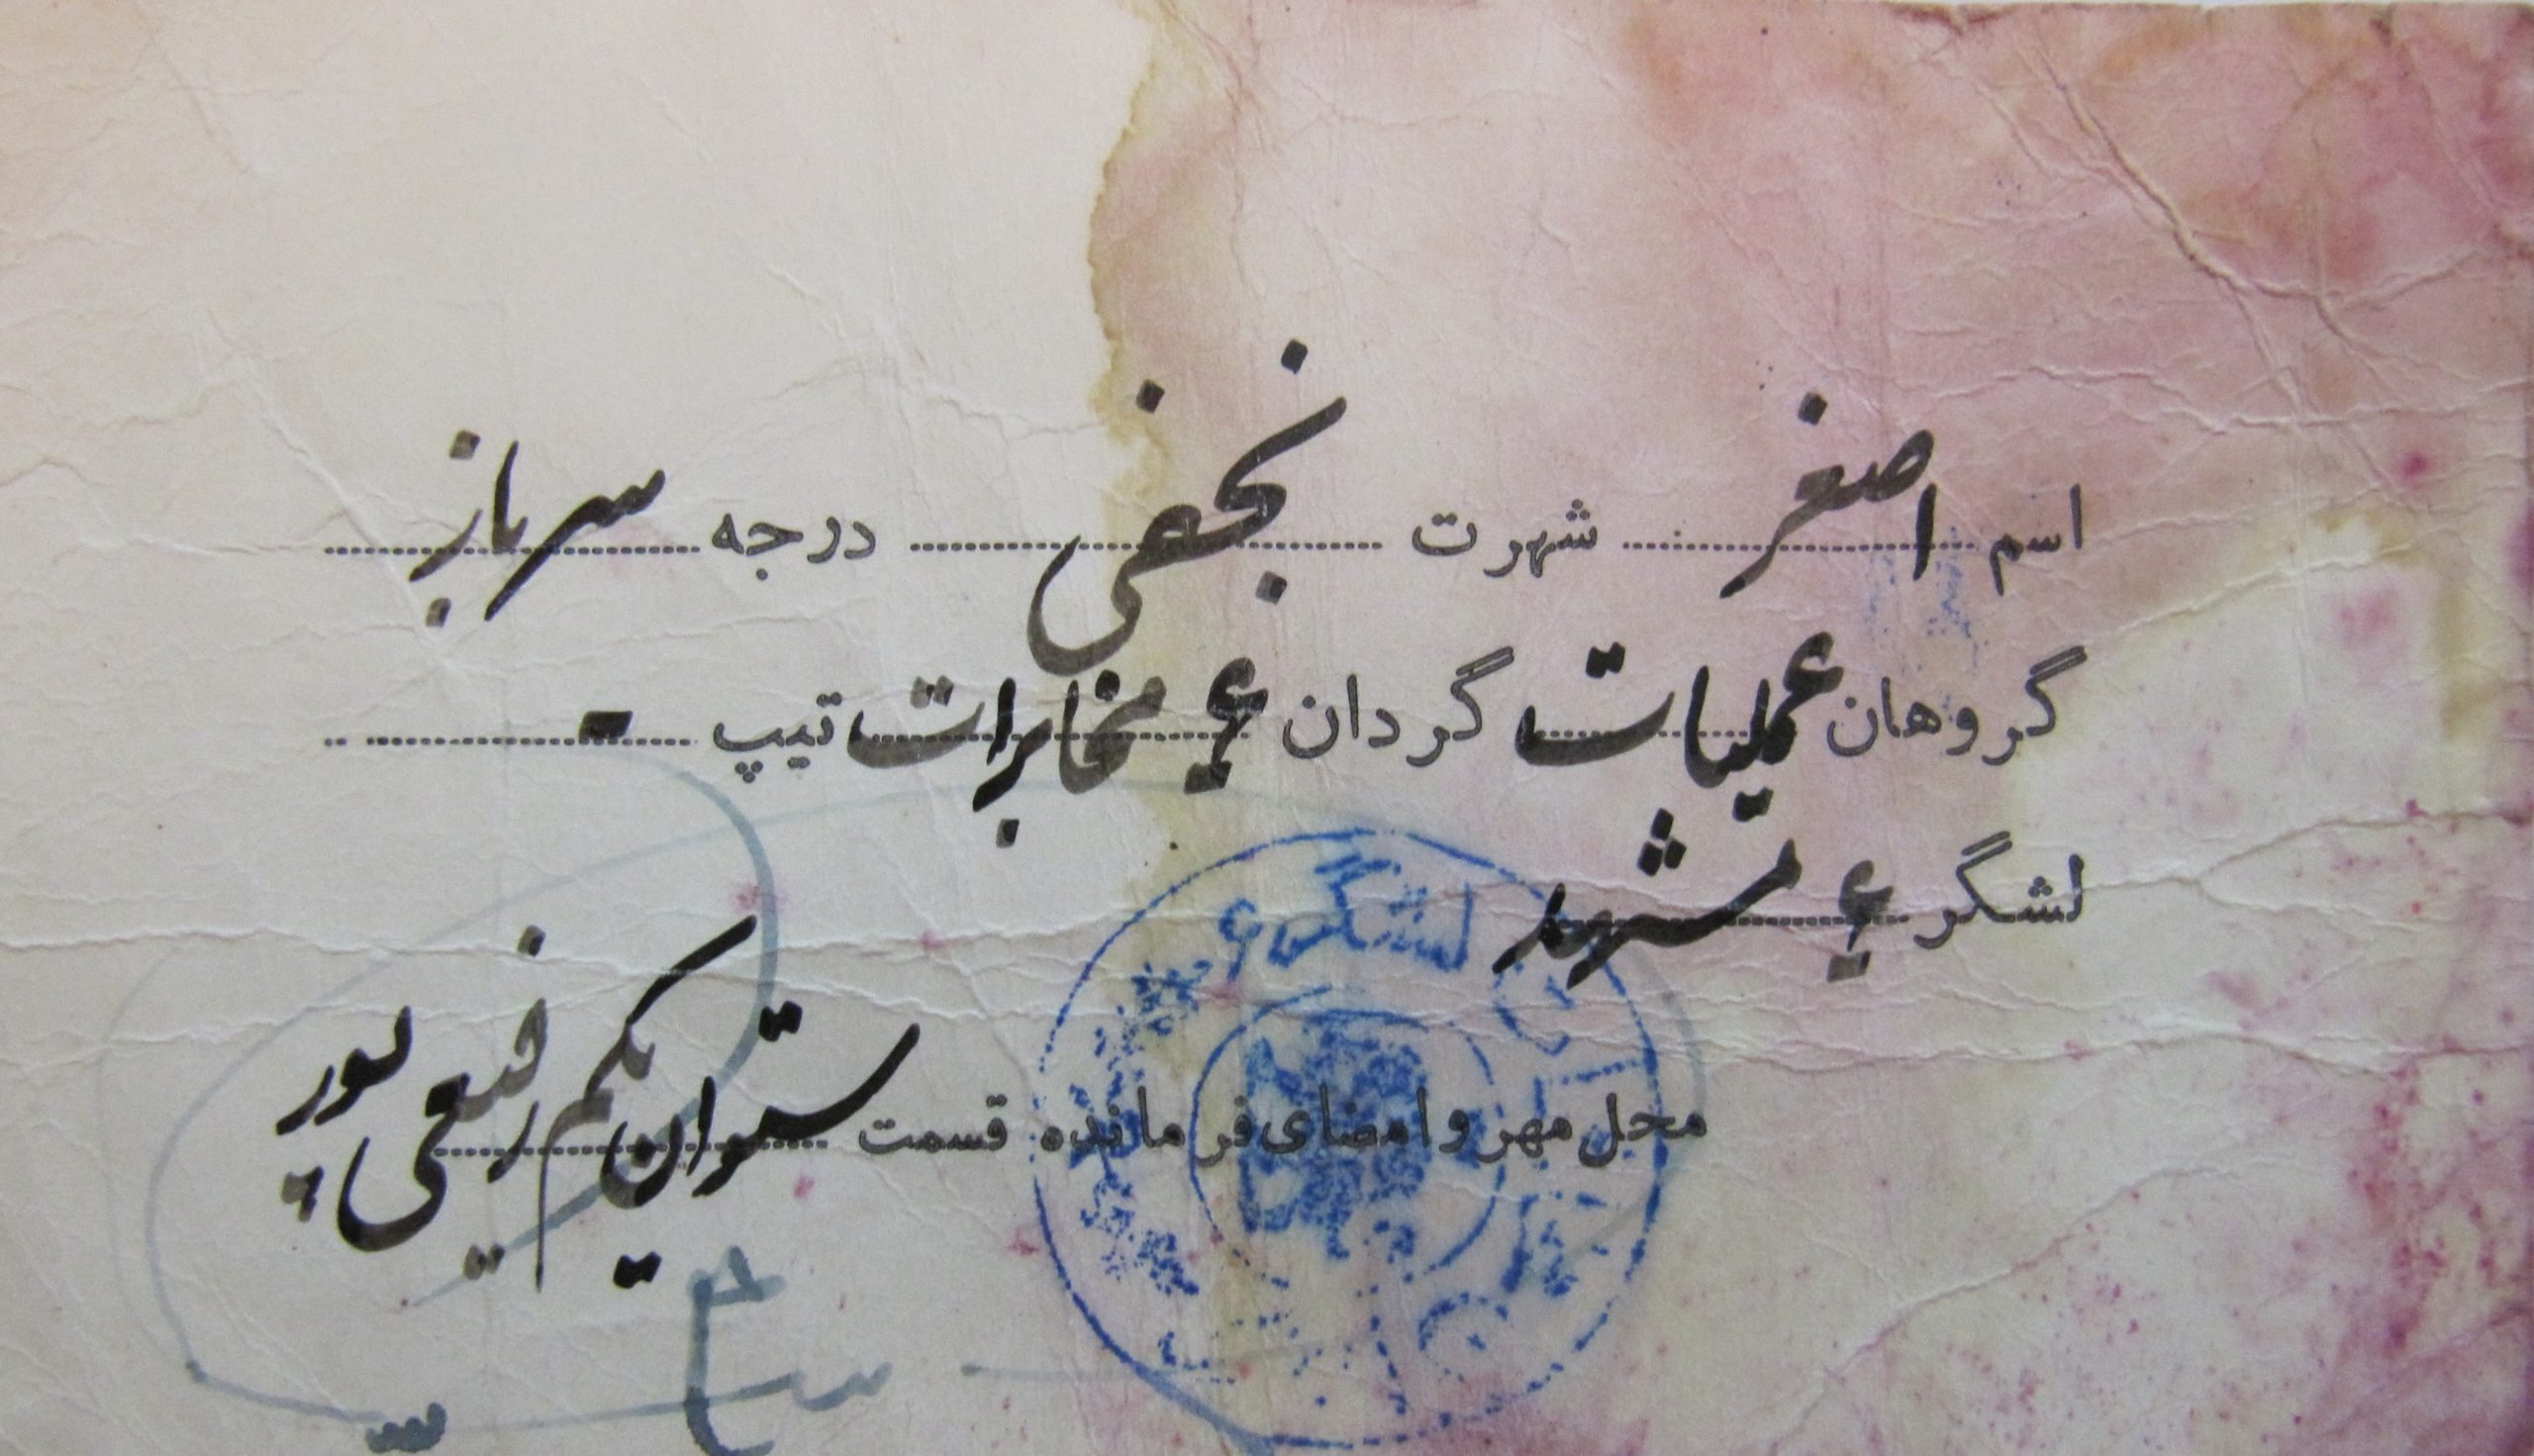 اسم اصغر شهرت نجفی درجه سرباز
گروهان عملیات گردان ۴ مخابرات تیپ -
لشگر ۴ مشهد
لشگر ۴
محل مهر و امضای فرمانده قسمت ستوان یکم رفیعی پور